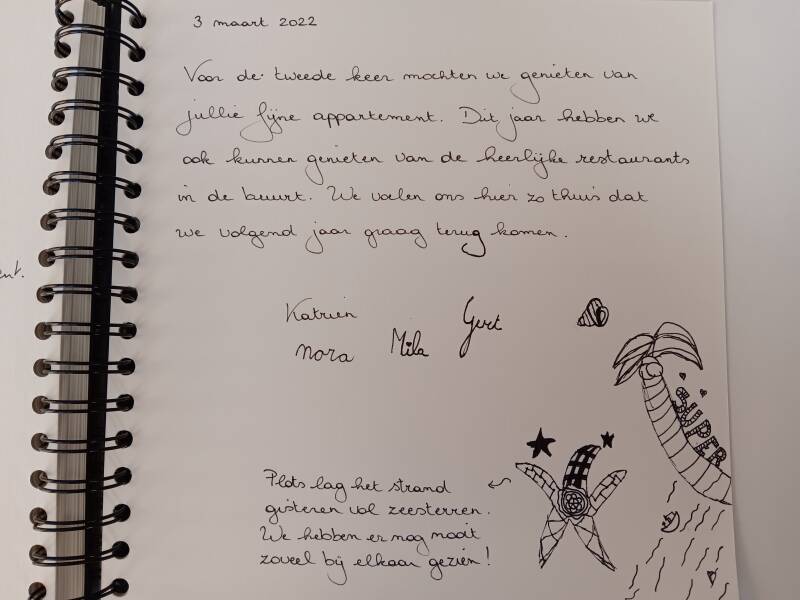 3 maart 2022
Voor de tweede keer mochten we genieten van
jullie fijne appartement. Dit jaar hebben we
ook kunnen genieten van de heerlijke restaurants
in de buurt. We voelen ons hier zo thuis dat
we volgend jaar graag terug komen.
Katrien
Gert
Nora
Mila
SUPER
Plots lag het strand
gisteren vol zeesterren.
We hebben er nog nooit
zoveel bij elkaar gezien!